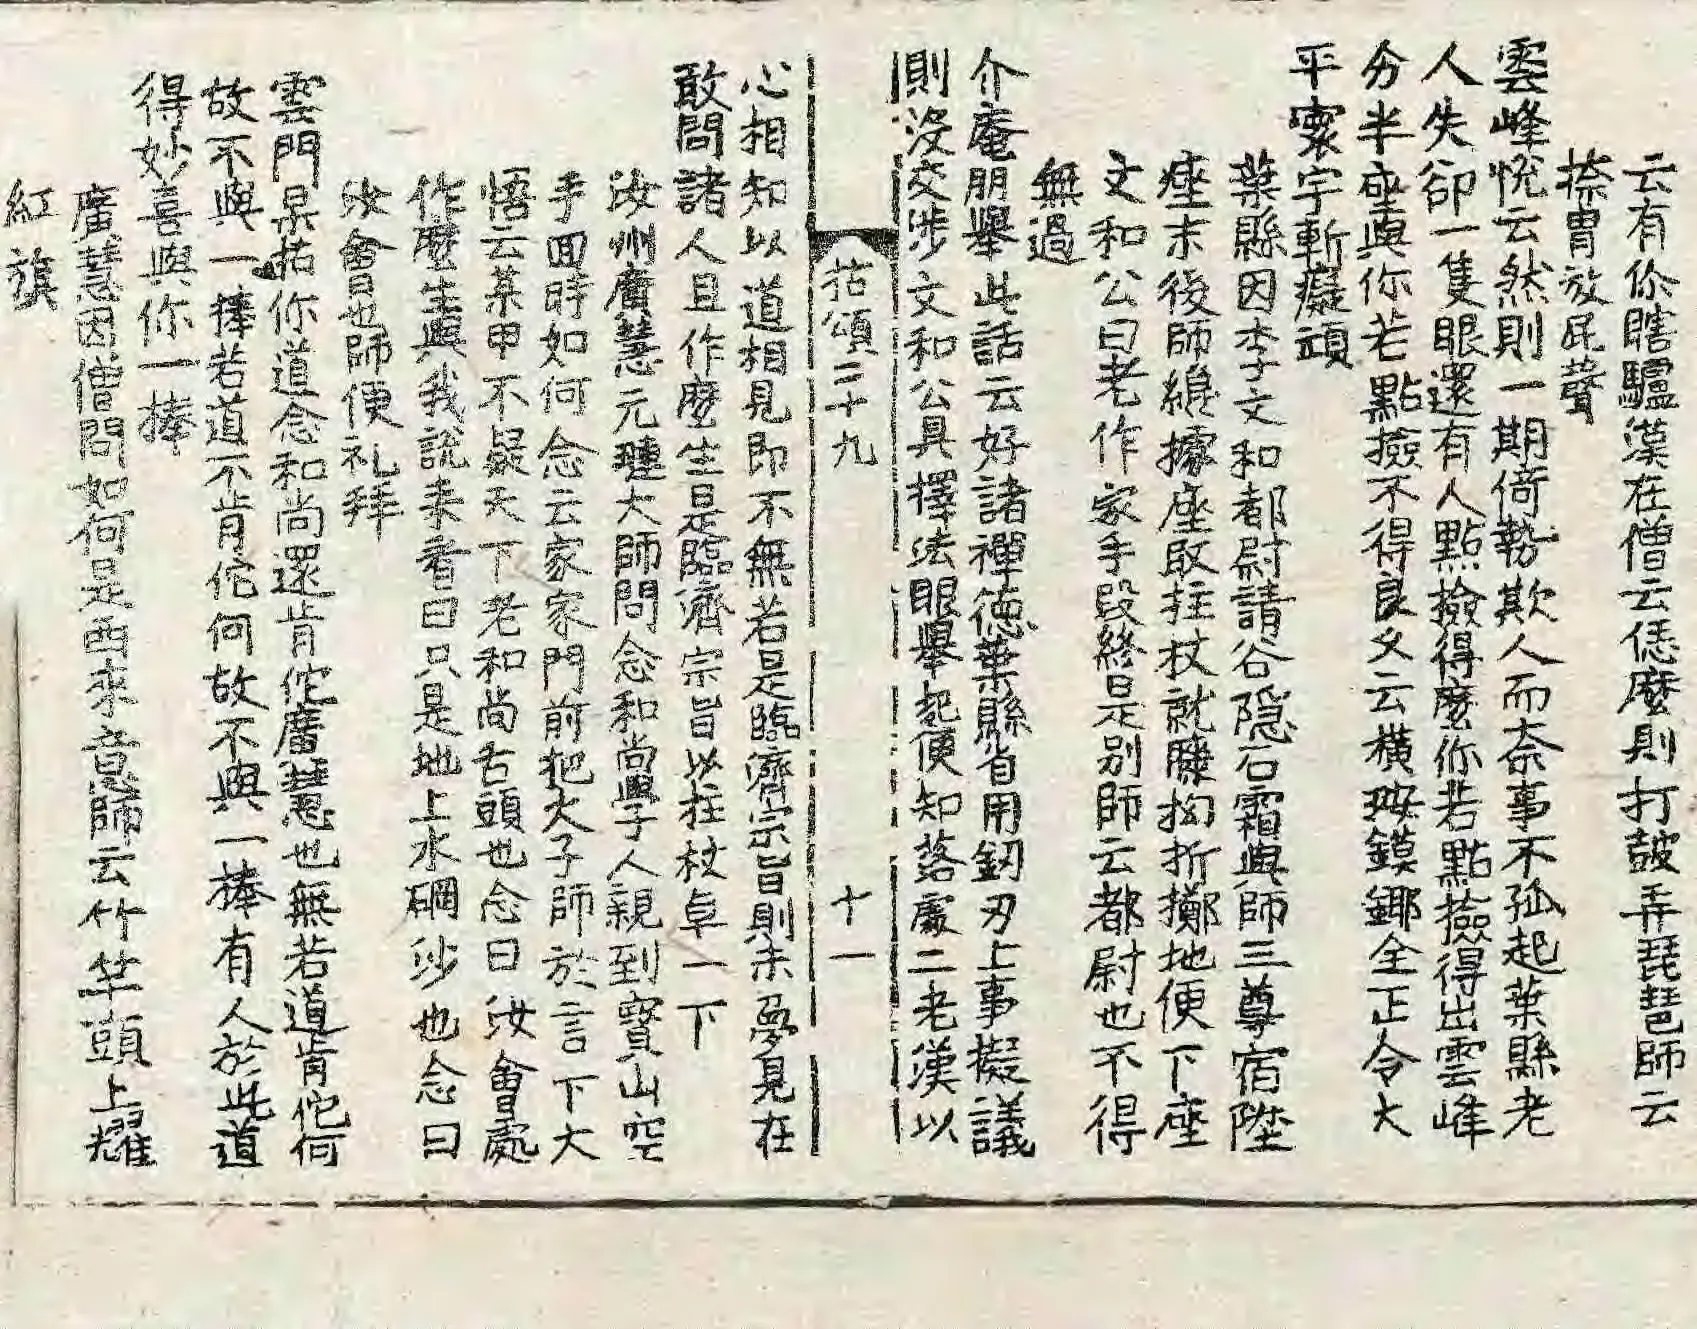 云有伱瞎驢漢在僧云恁麽則打皷弄琵琶師云
捺胃放屁聲
雲峰悅云然則一期倚勢欺人而奈事不孤起葉縣老
人失卻一隻眼還有人點撿得麽你若點撿得出雲峰
分半座與你若點撿不得良久云橫按鏌鎁全正令大
平寰宇斬癡頑
葉縣因李文和都尉請谷隱石霜與師三尊宿陞
座末後師纔據座取拄杖就膝拗折擲地便下座
文和公曰老作家手段終是別師云都尉也不得
無過
介庵朋舉此話云好諸禪德葉縣省用釰刃上事擬議
則沒交涉文和公具擇法眼舉起便知落處二老漢以
拈頌三十九 十一
心相知以道相見即不無若是臨濟宗旨則未夢見在
敢問諸人且作麽生是臨濟宗旨以拄杖卓一下
汝州廣慧元璉大師問念和尚學人親到寶山空
手回時如何念云家家門前把火子師於言下大
悟云某甲不疑天下老和尚舌頭也念曰汝會處
作麽生與我說来看曰只是地上水碙沙也念曰
汝會也師便礼拜
雲門杲拈你道念和尚還肯佗廣慧也無若道肯佗何
故不與一捧若道不肯佗何故不與一捧有人於此道
得妙喜與你一捧
廣慧因僧問如何是西來意師云竹竿頭上耀
紅旗